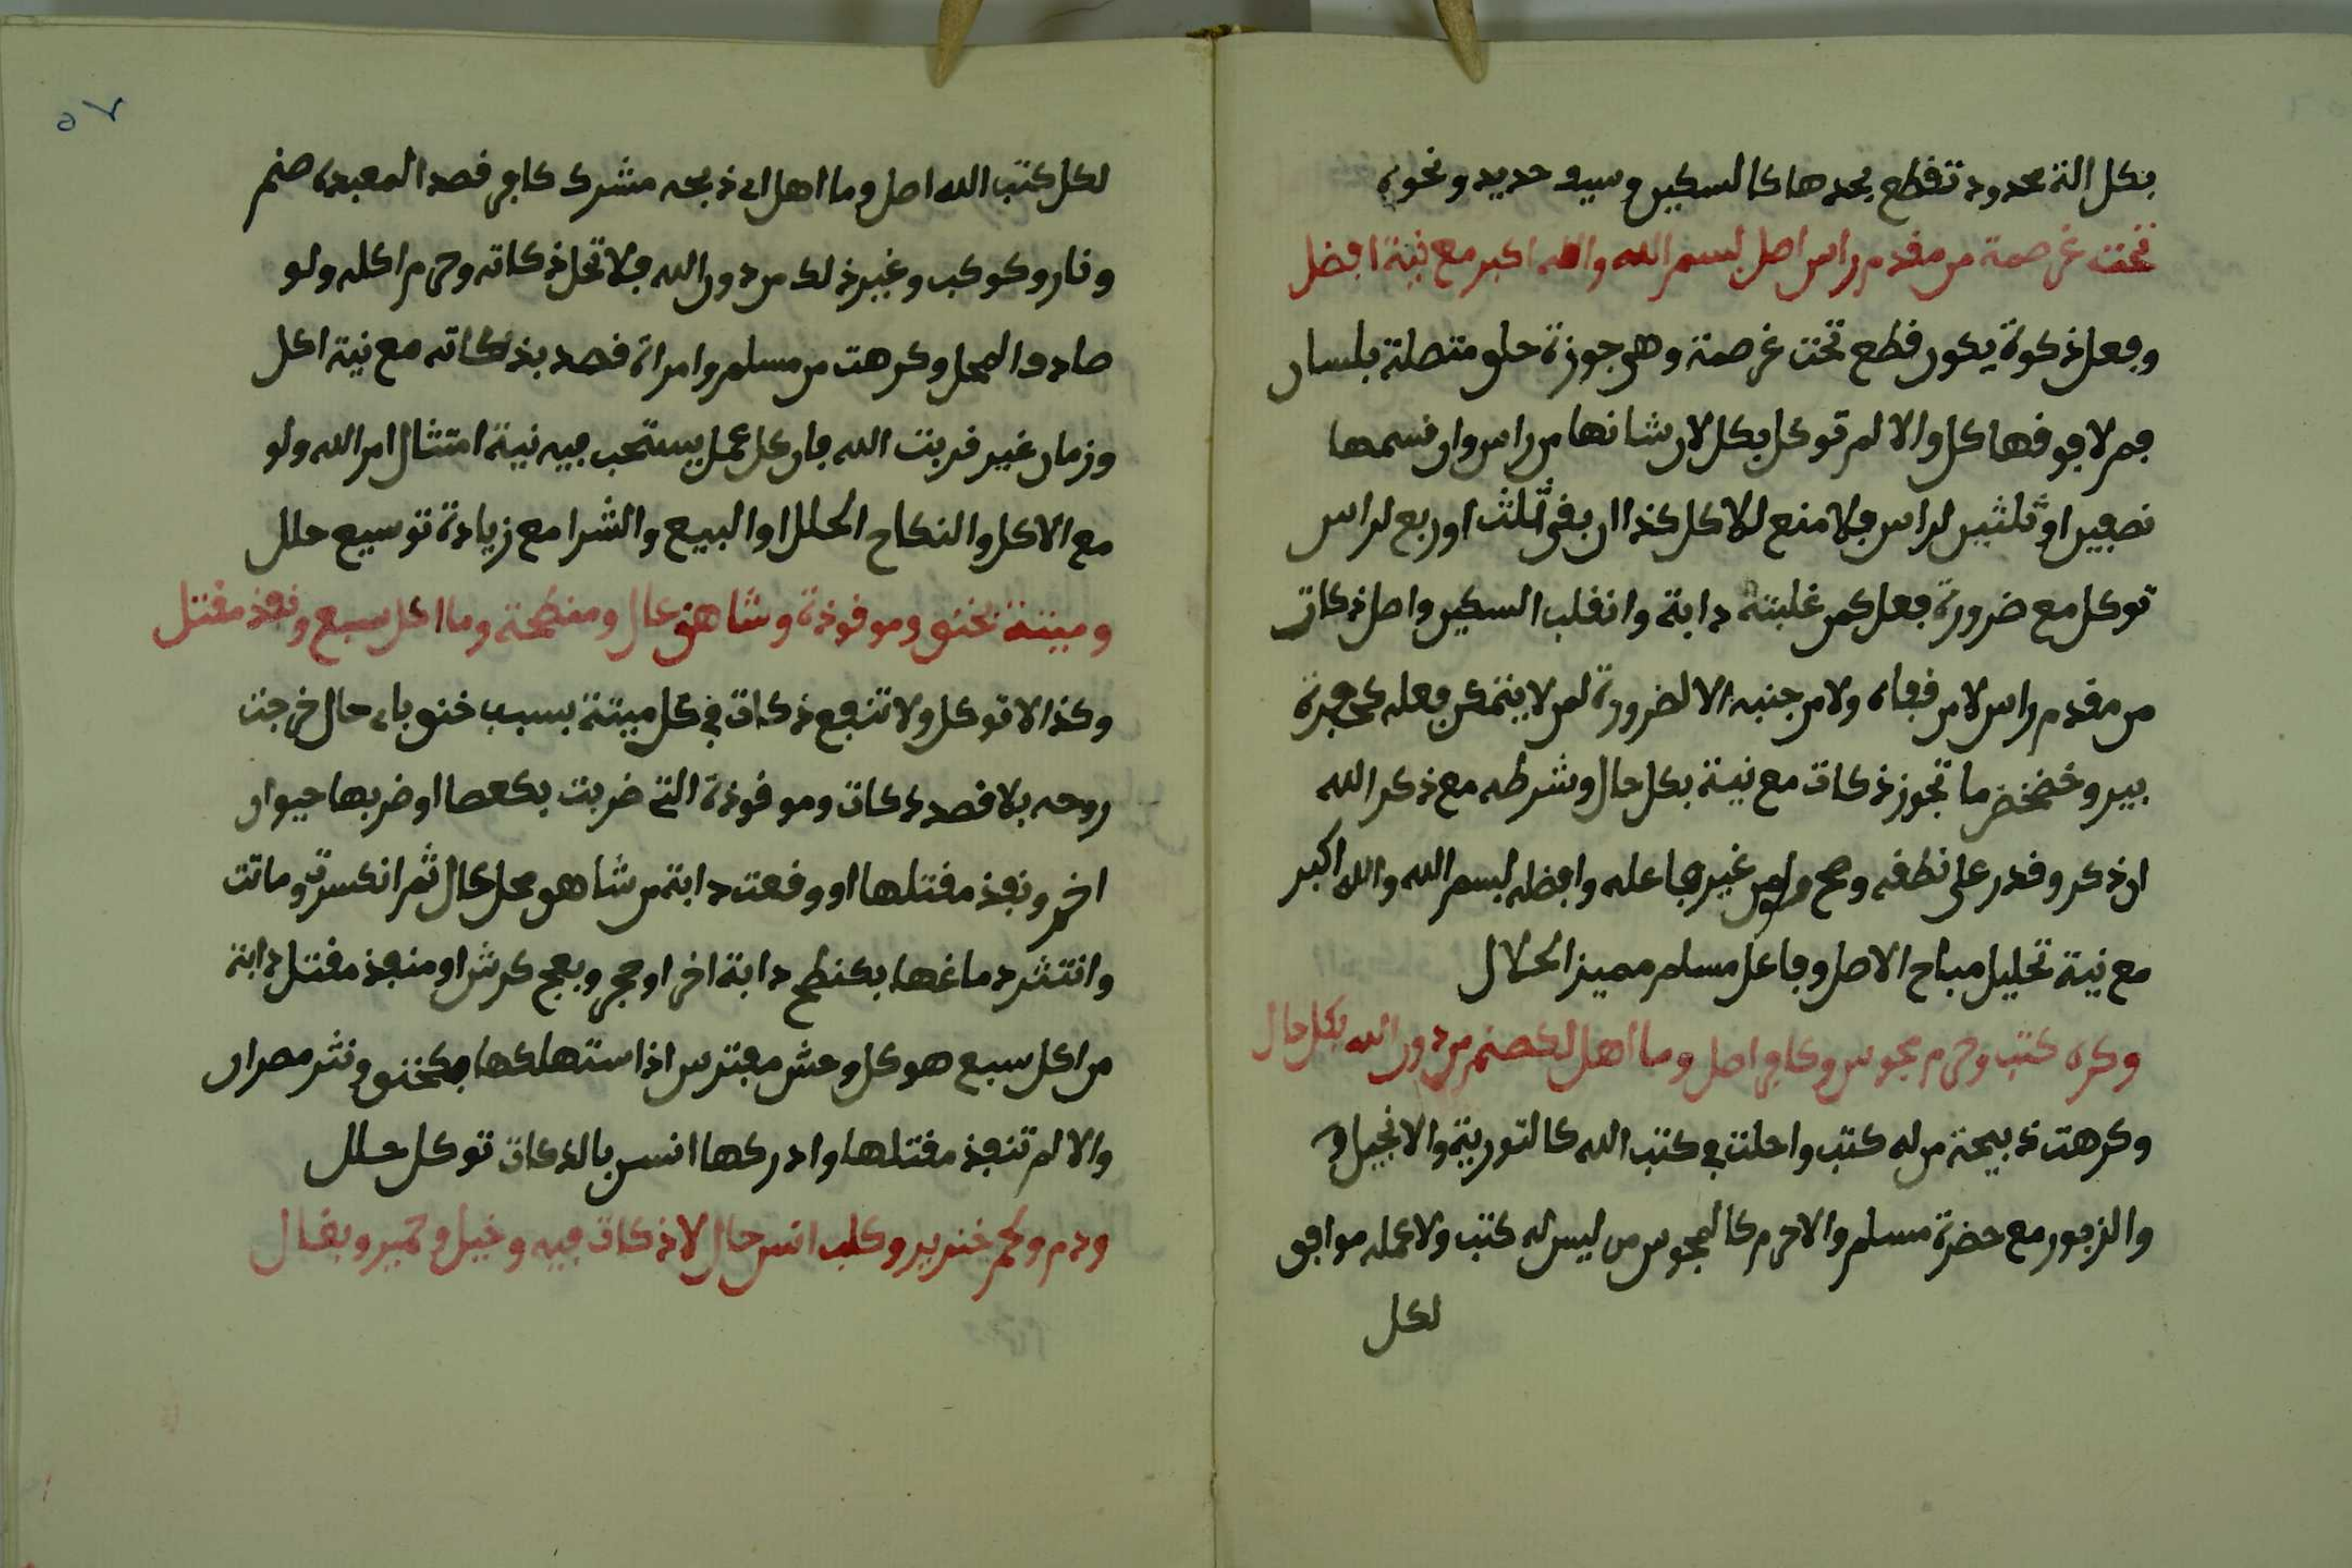 بكل الة محدود تقطع بحدها كالسكين وسيف حديد ونحوه
تحت غرصمة من مقدم راس اصل بسم الله والله اكبر مع نية افضل
وفعل ذكوة يكون قطع تحت غرصمة وهي جوزة حلق متصلة بلسان
فم لا فوقها كل والا لم توكل بكل لان شانها من راس وان قسمها
نصفين او ثلثين لراس فلا منع للاكل كذا ان بقى ثلث اوربع لراس
توكل مع ضرورة فعل كمن غلبته دابة وانقلب السكين واصل ذكات
من مقدم راس لا من قفاه ولا من جنبه الا لضرورة لمن لا يتمكن فعله كحفرة
بير وخضخض ما تجوز ذكات مع نية بكل حال وشرطه مع ذكر الله
ان ذكر وقدر على نطقه وصح من غير فاعله وافضله بسم الله والله اكبر
مع نية تحليل مباح الاصل وفاعل مسلم مميز الحلال
وكره كتب وحرم مجوس وكافر اصل وما اهل لكصنم من دون الله بكل حال
وكرهت ذبيحة من له كتب واحلت في كتب الله كالتورية والانجيل و
والزبور مع حضرة مسلم والاحرم كالمجوس من ليس له كتب ولا عمله موافق
لكل
٥٧
لكل كتب الله اصل وما اهل اى ذبحه مشرك كافر قصد المعبده صنم
ونار وكوكب وغير ذلك من دون الله فلا تحل ذكاته وحرم اكله ولو
صادف المحل وكرهت من مسلم وامراة قصد بذكاته مع نية اكل
وزمان غير قربت الله فان كل عمل يستحب فيه نية امتثال امر الله ولو
مع الاكل والنكاح الحلل او البيع والشرا مع زيادة توسيع حلل
وميتة بخنق وموقوذة وشاهق عال ومنطحة وما اكل سبع ونفذ مقتل
وكذا لا توكل ولا تنفع ذكات في كل ميتة بسبب خنق باى حال خرجت
روحه بلا قصد ذكات وموقوذة التي ضربت بكعصا او ضربها حيوان
اخر ونفذ مقتلها او وقعت دابة من شاهق محل عال ثم انكسرت وماتت
وانتثر دماغها بكنطح دابة اخرا وحجر وبعج كرش او منفذ مقتل دابة
من اكل سبع هو كل وحش مفترس اذا ستهلكها فكخنق ونثر مصران
والا لم تنفذ مقتلها وادركها انس بالذكات توكل حلل
ودم ولحم خنزير وكلب انس حال لا ذكات فيه وخيل وحمير وبغال